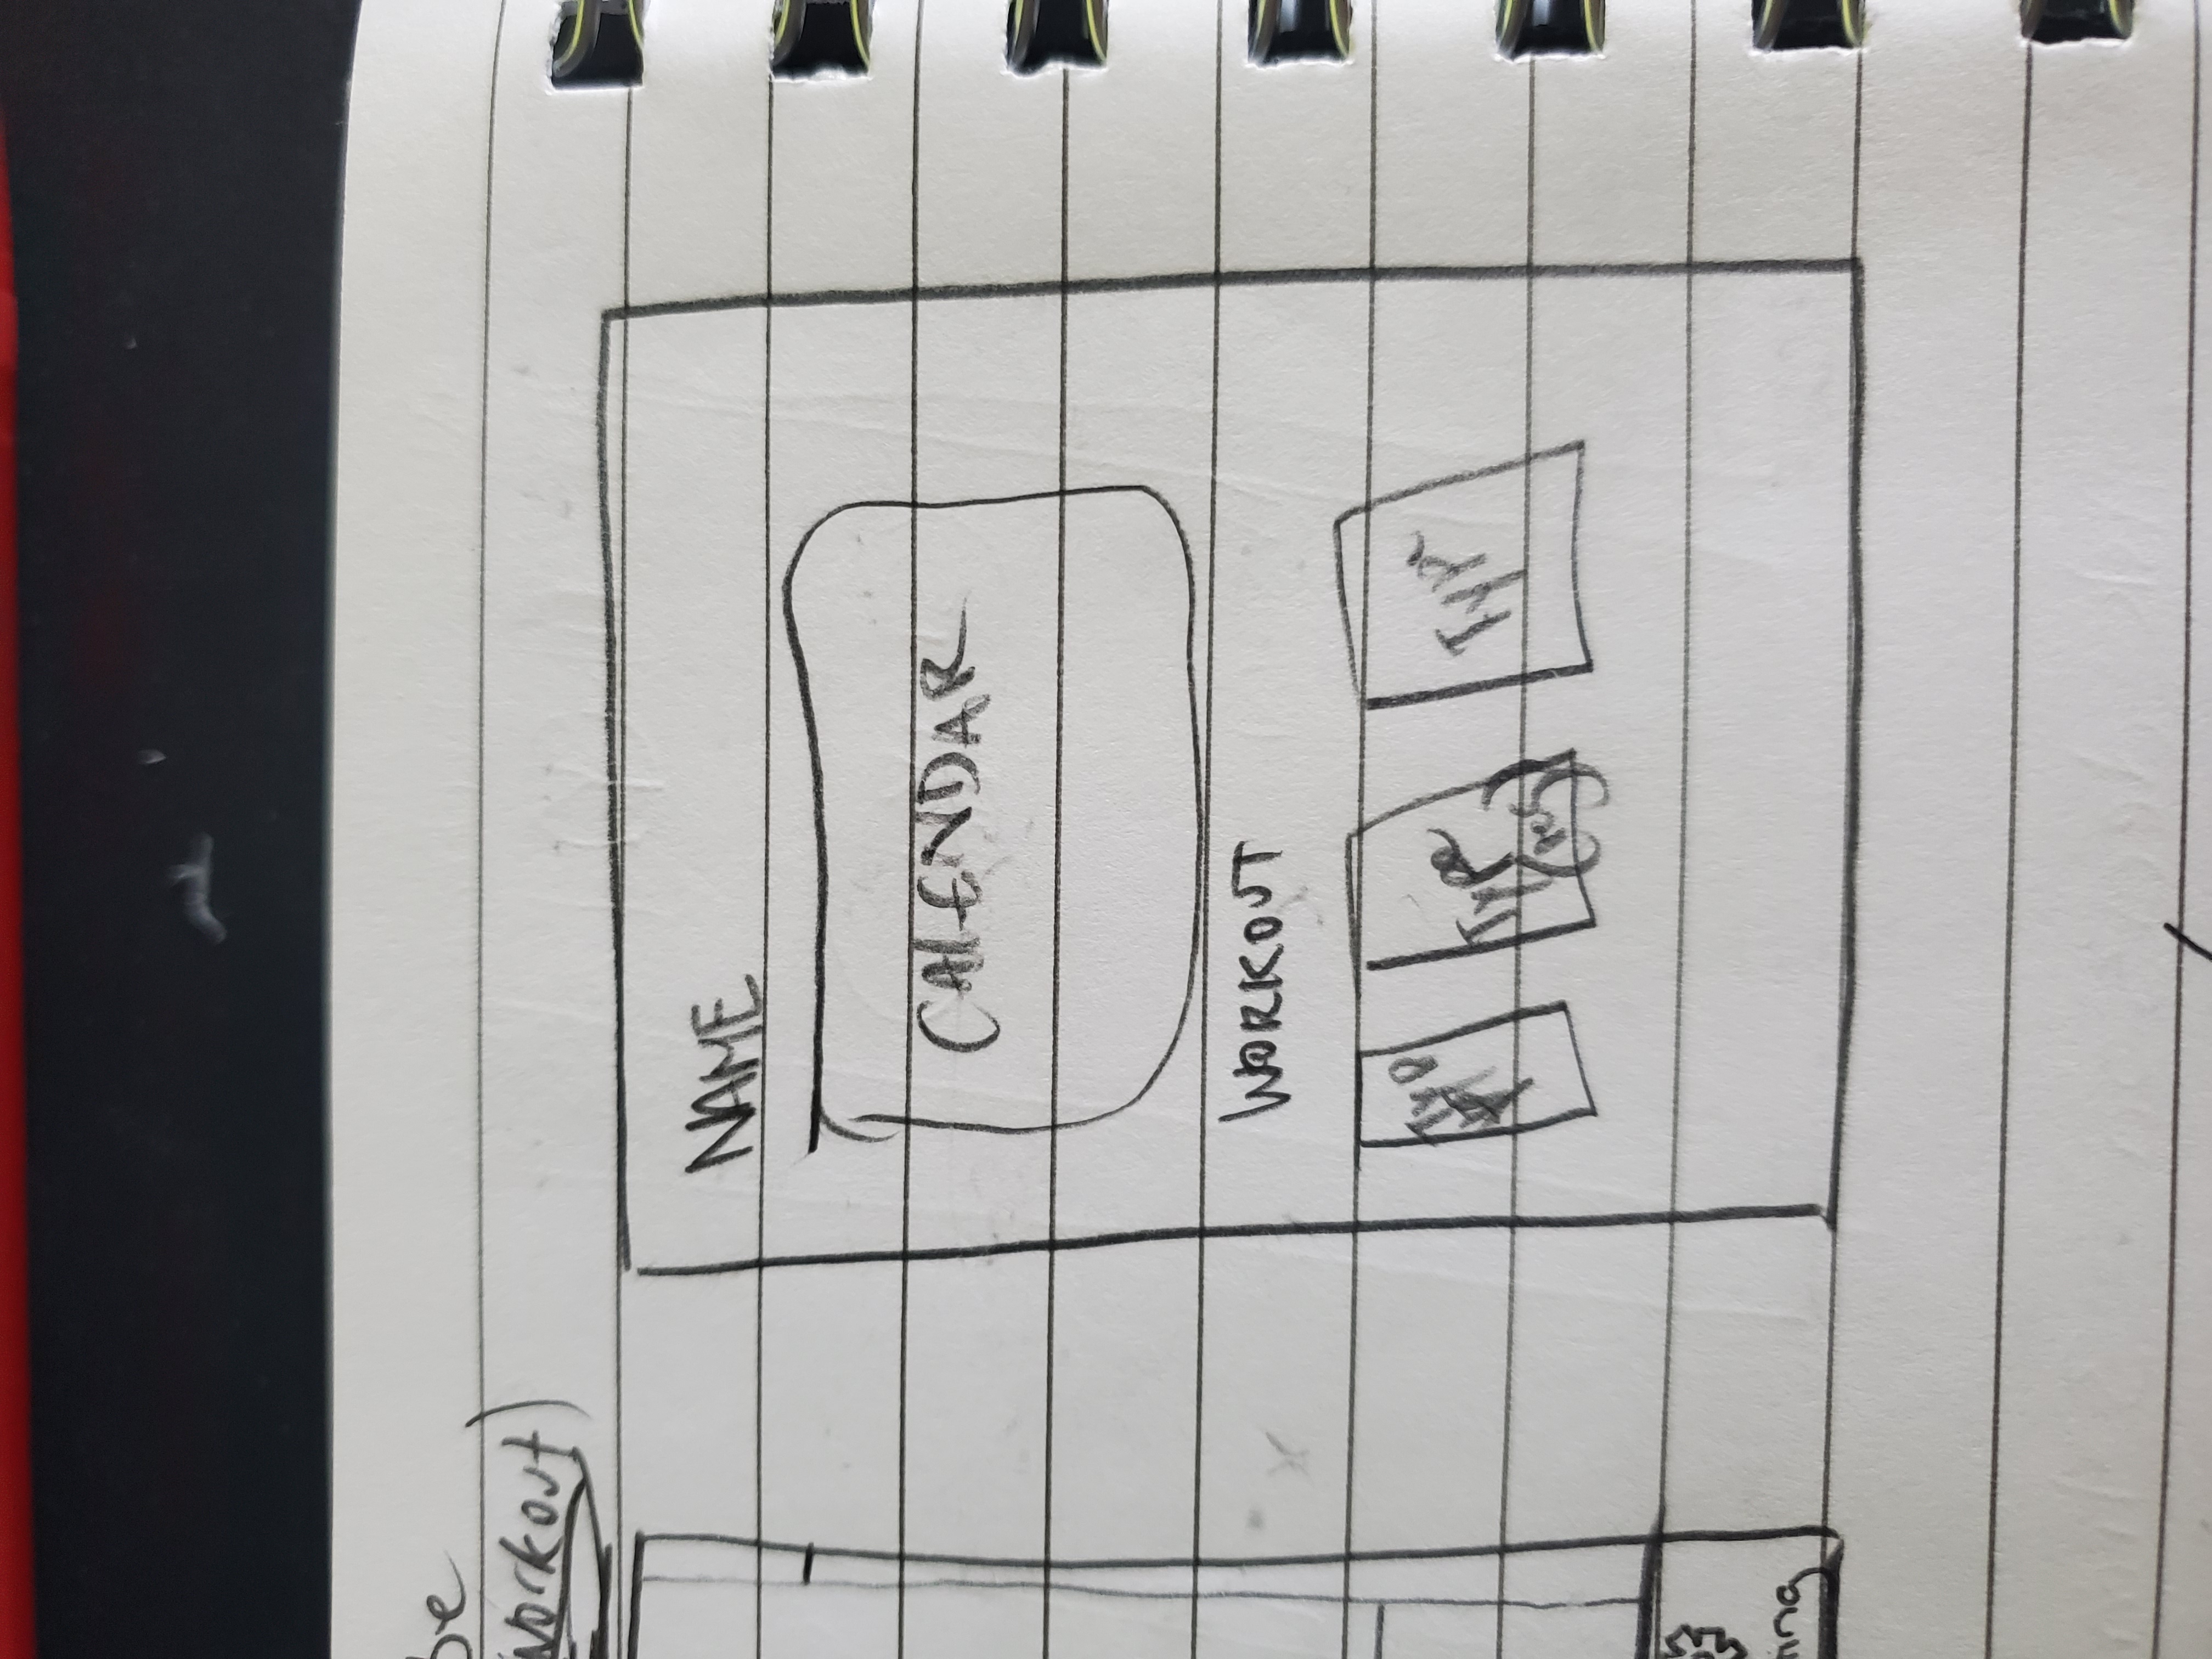 be
Workout)
NAME
CALENDAR
WORKOUT
Type
Type
Type
ting